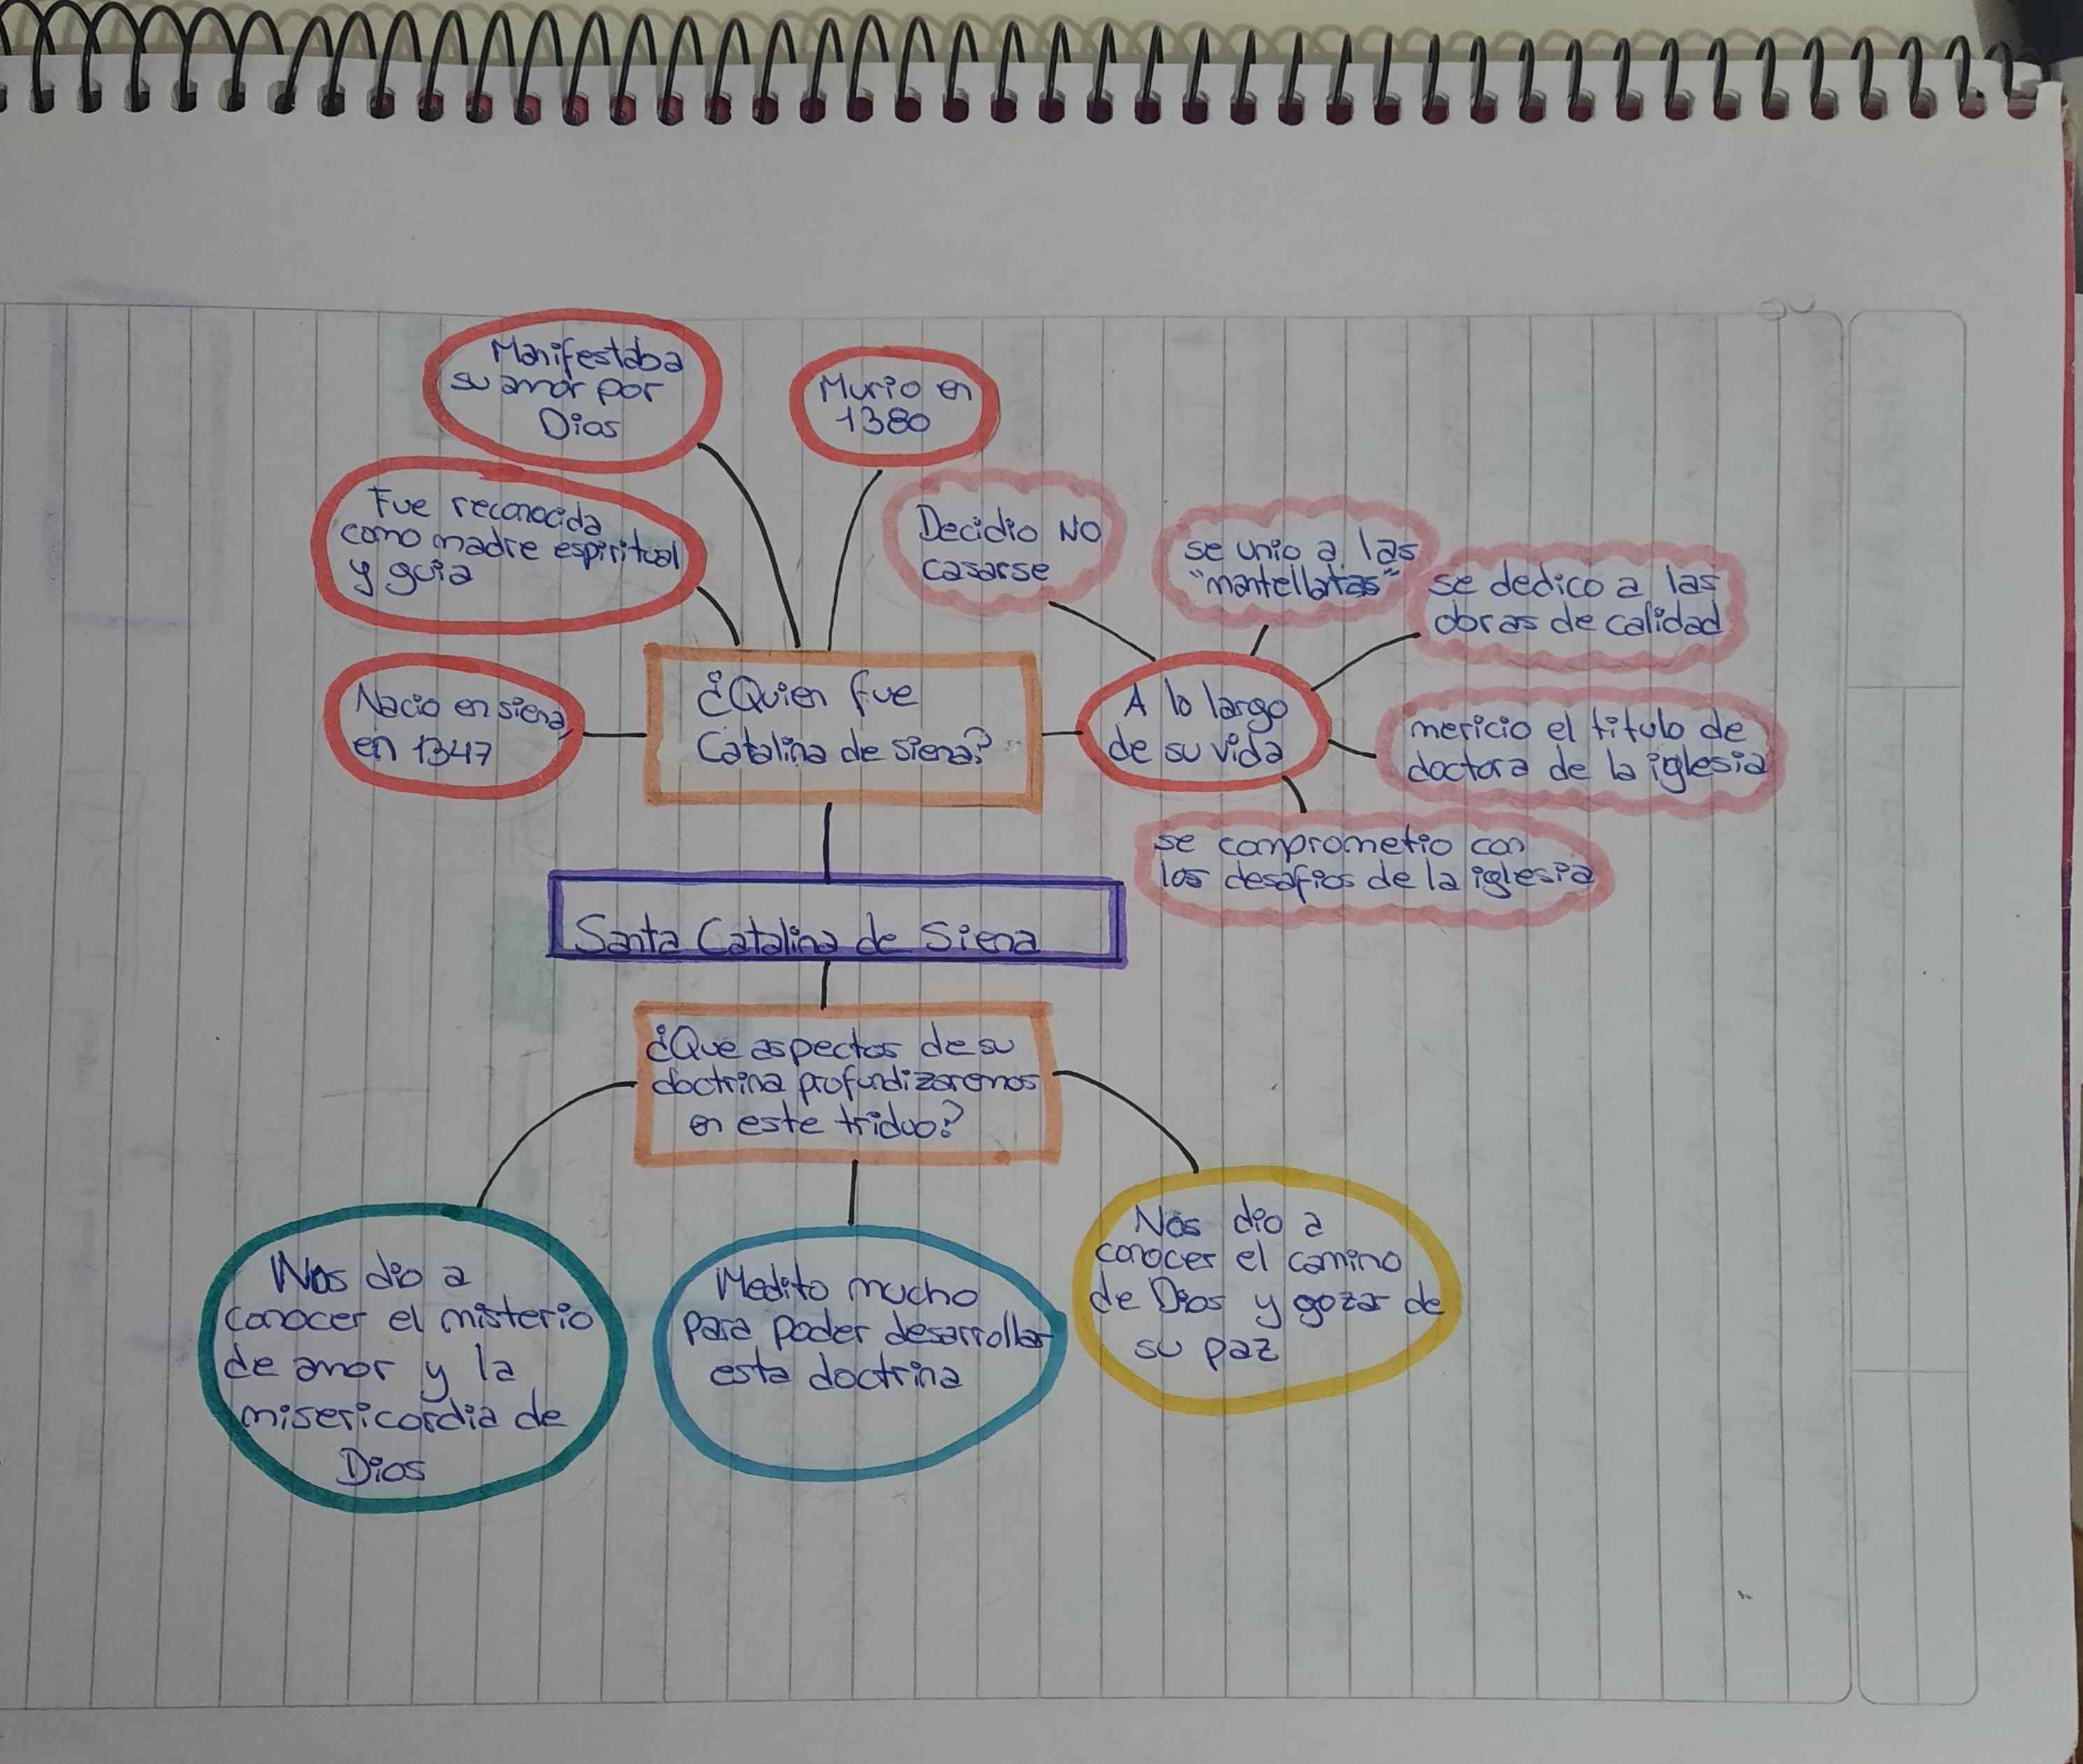 Manifestaba
su amor por
Dios
Murio en
1380
Fue reconocida
como madre espiritual
y guia
Decidio NO
casarse
se unio a las
"mantellatas"
se dedico a las
obras de calidad
Nacio en siena
en 1347
¿Quien fue
Catalina de Siena?
A lo largo
de su vida
mericio el titulo de
doctora de la iglesia
se comprometio con
los desafios de la iglesia
Santa Catalina de Siena
¿Que aspectos de su
doctrina profundizaremos
en este triduo?
Nos dio a
conocer el misterio
de amor y la
misericordia de
Dios
Medito mucho
para poder desarrollar
esta doctrina
Nos dio a
conocer el camino
de Dios y gozar de
su paz